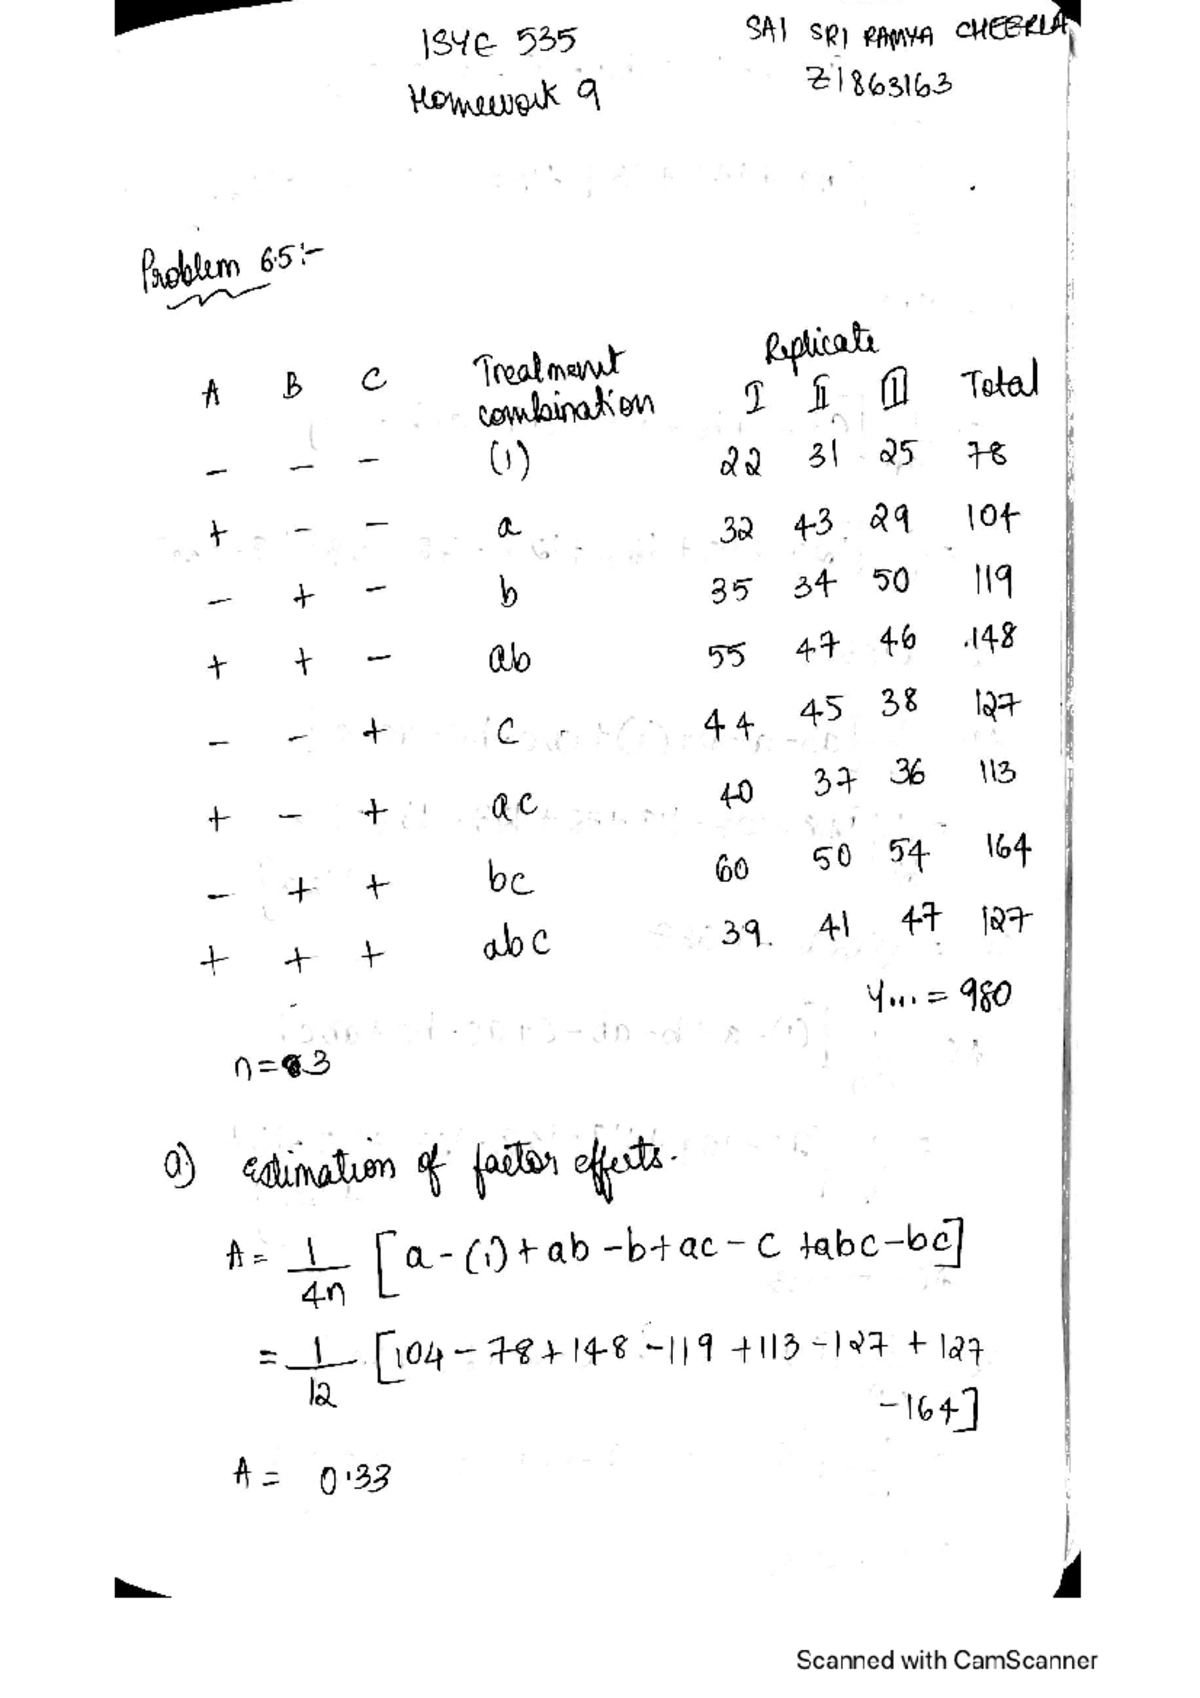 ISYE 535
SAI SRI RAMYA CHEERLA
Homework 9
Z1863163
Problem 6.5:-
A B C Treatment combination Replicate I II III Total
- - - (1) 22 31 25 78
+ - - a 32 43 29 104
- + - b 35 34 50 119
+ + - ab 55 47 46 148
- - + c 44 45 38 127
+ - + ac 40 37 36 113
- + + bc 60 50 54 164
+ + + abc 39 41 47 127
Y... = 980
n = 3
a) Estimation of factor effects.
A = 1/4n [a - (1) + ab - b + ac - c + abc - bc]
= 1/12 [104 - 78 + 148 - 119 + 113 - 127 + 127
- 164]
A = 0.33
Scanned with CamScanner